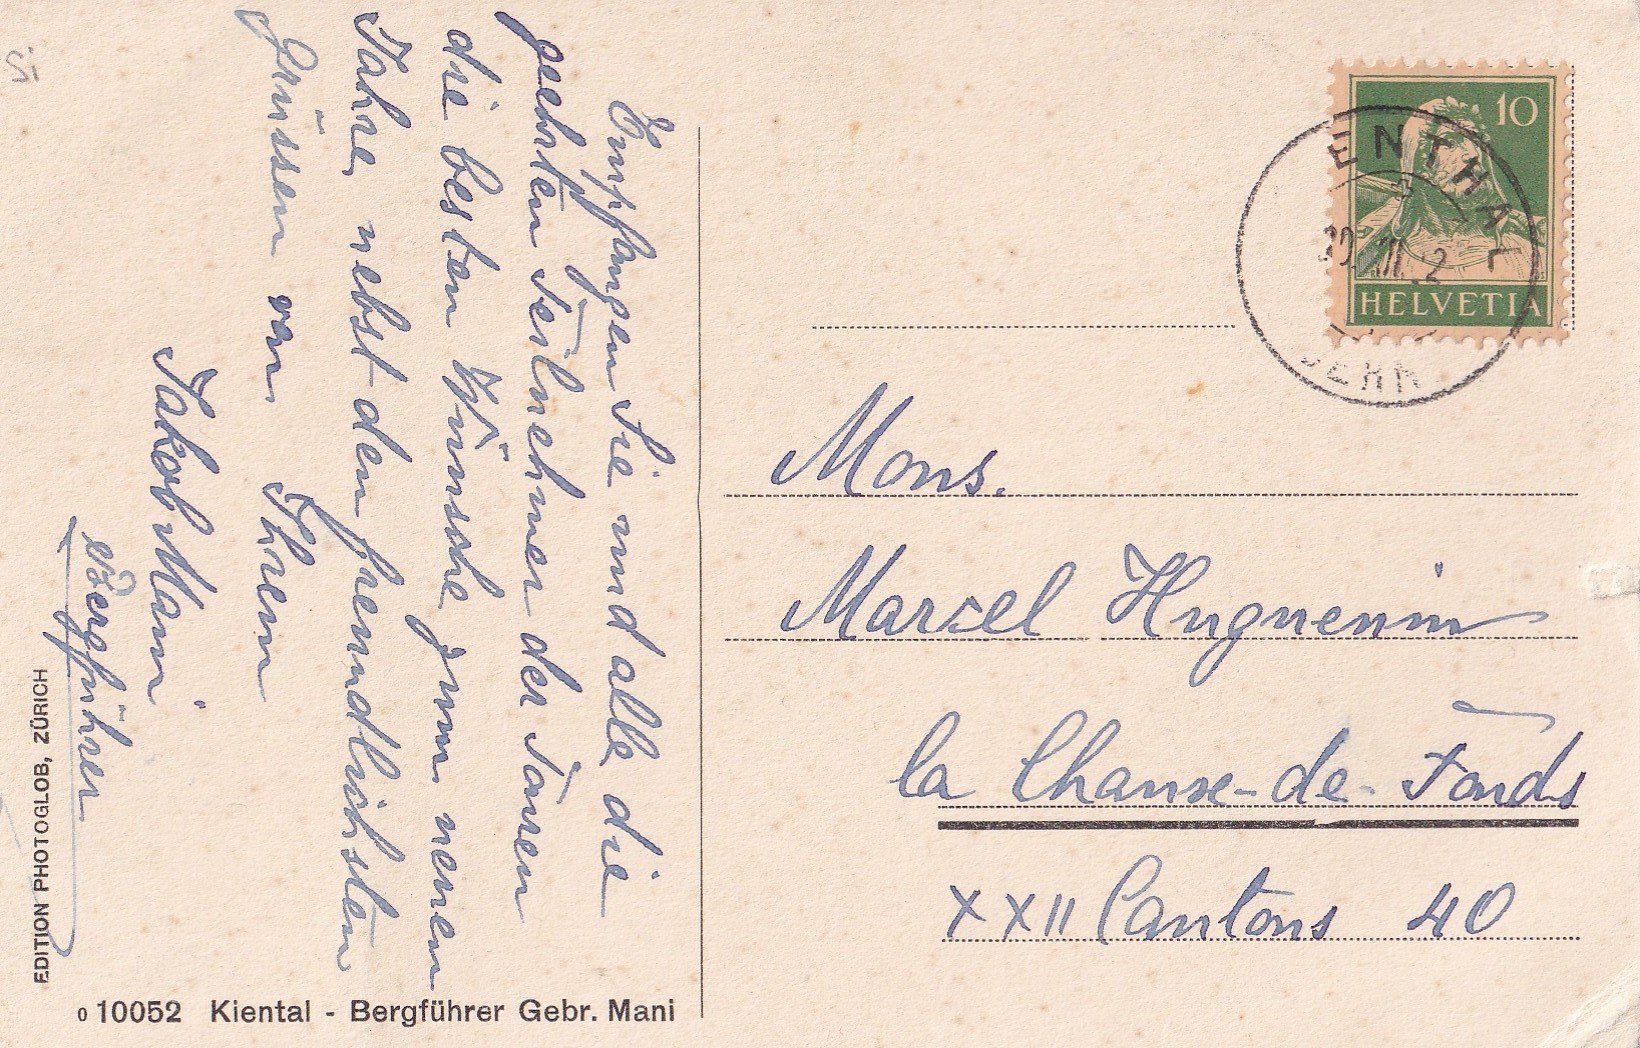 Empfangen Sie und alle die
geehrten Teilnehmer der Touren
die besten Wünsche zum neuen
Jahre, nebst den freundlichsten
Grüssen von Ihrem
Jakob Mani
Bergführer
EDITION PHOTOGLOB, ZÜRICH
0 10052 Kiental - Bergführer Gebr. Mani
10
HELVETIA
ENTHAL
BERN
Mons.
Marcel Huguenin
la Chaux-de-Fonds
XXII Cantons 40